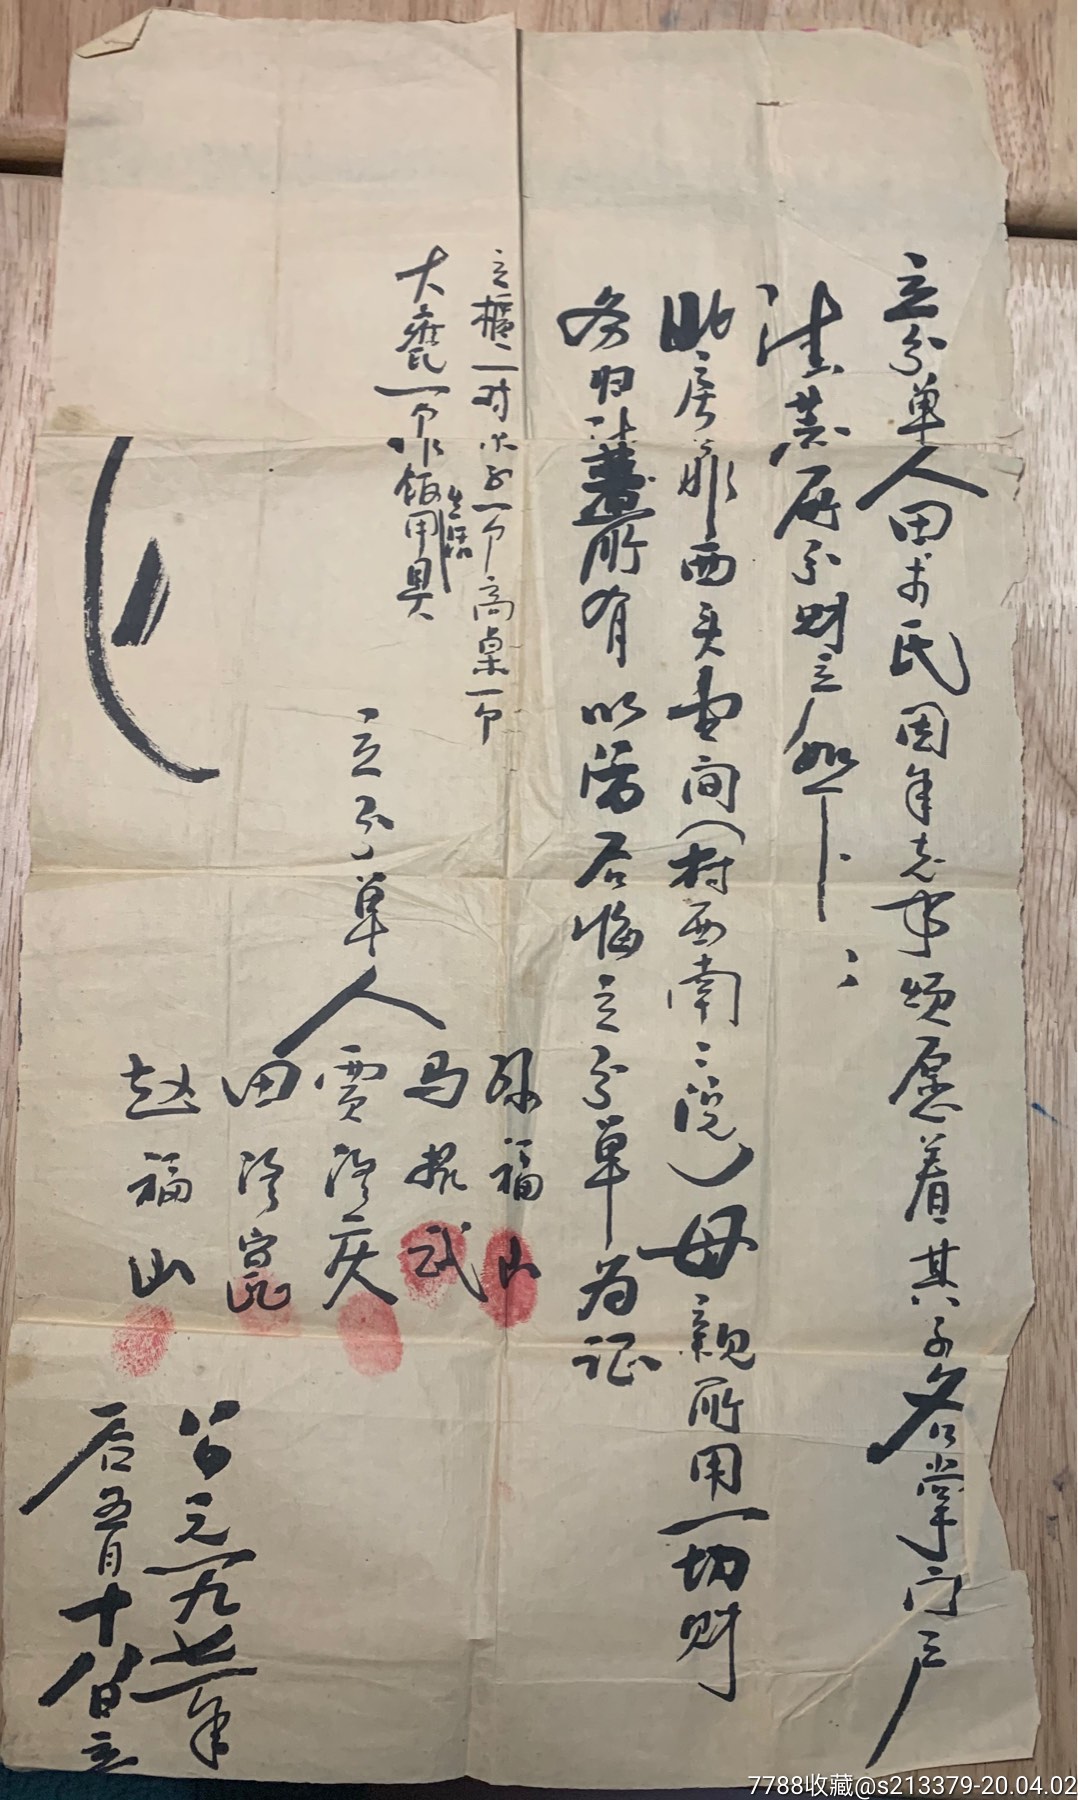 立分单人田于氏因年老事烦愿着其子各掌门户
所分财立如下：
北房靠西头壹间（村西南三院）母亲所用一切财
务归 所有以防后悔立分单为证
立柜一对 一个高桌一个
大瓮一个作饭用具
生活
立分单人
孙福山
马 武
贾洛庆
田洛昆
赵福山
公元一九七一年
后五月十八日立
7788收藏@s213379-20.04.02